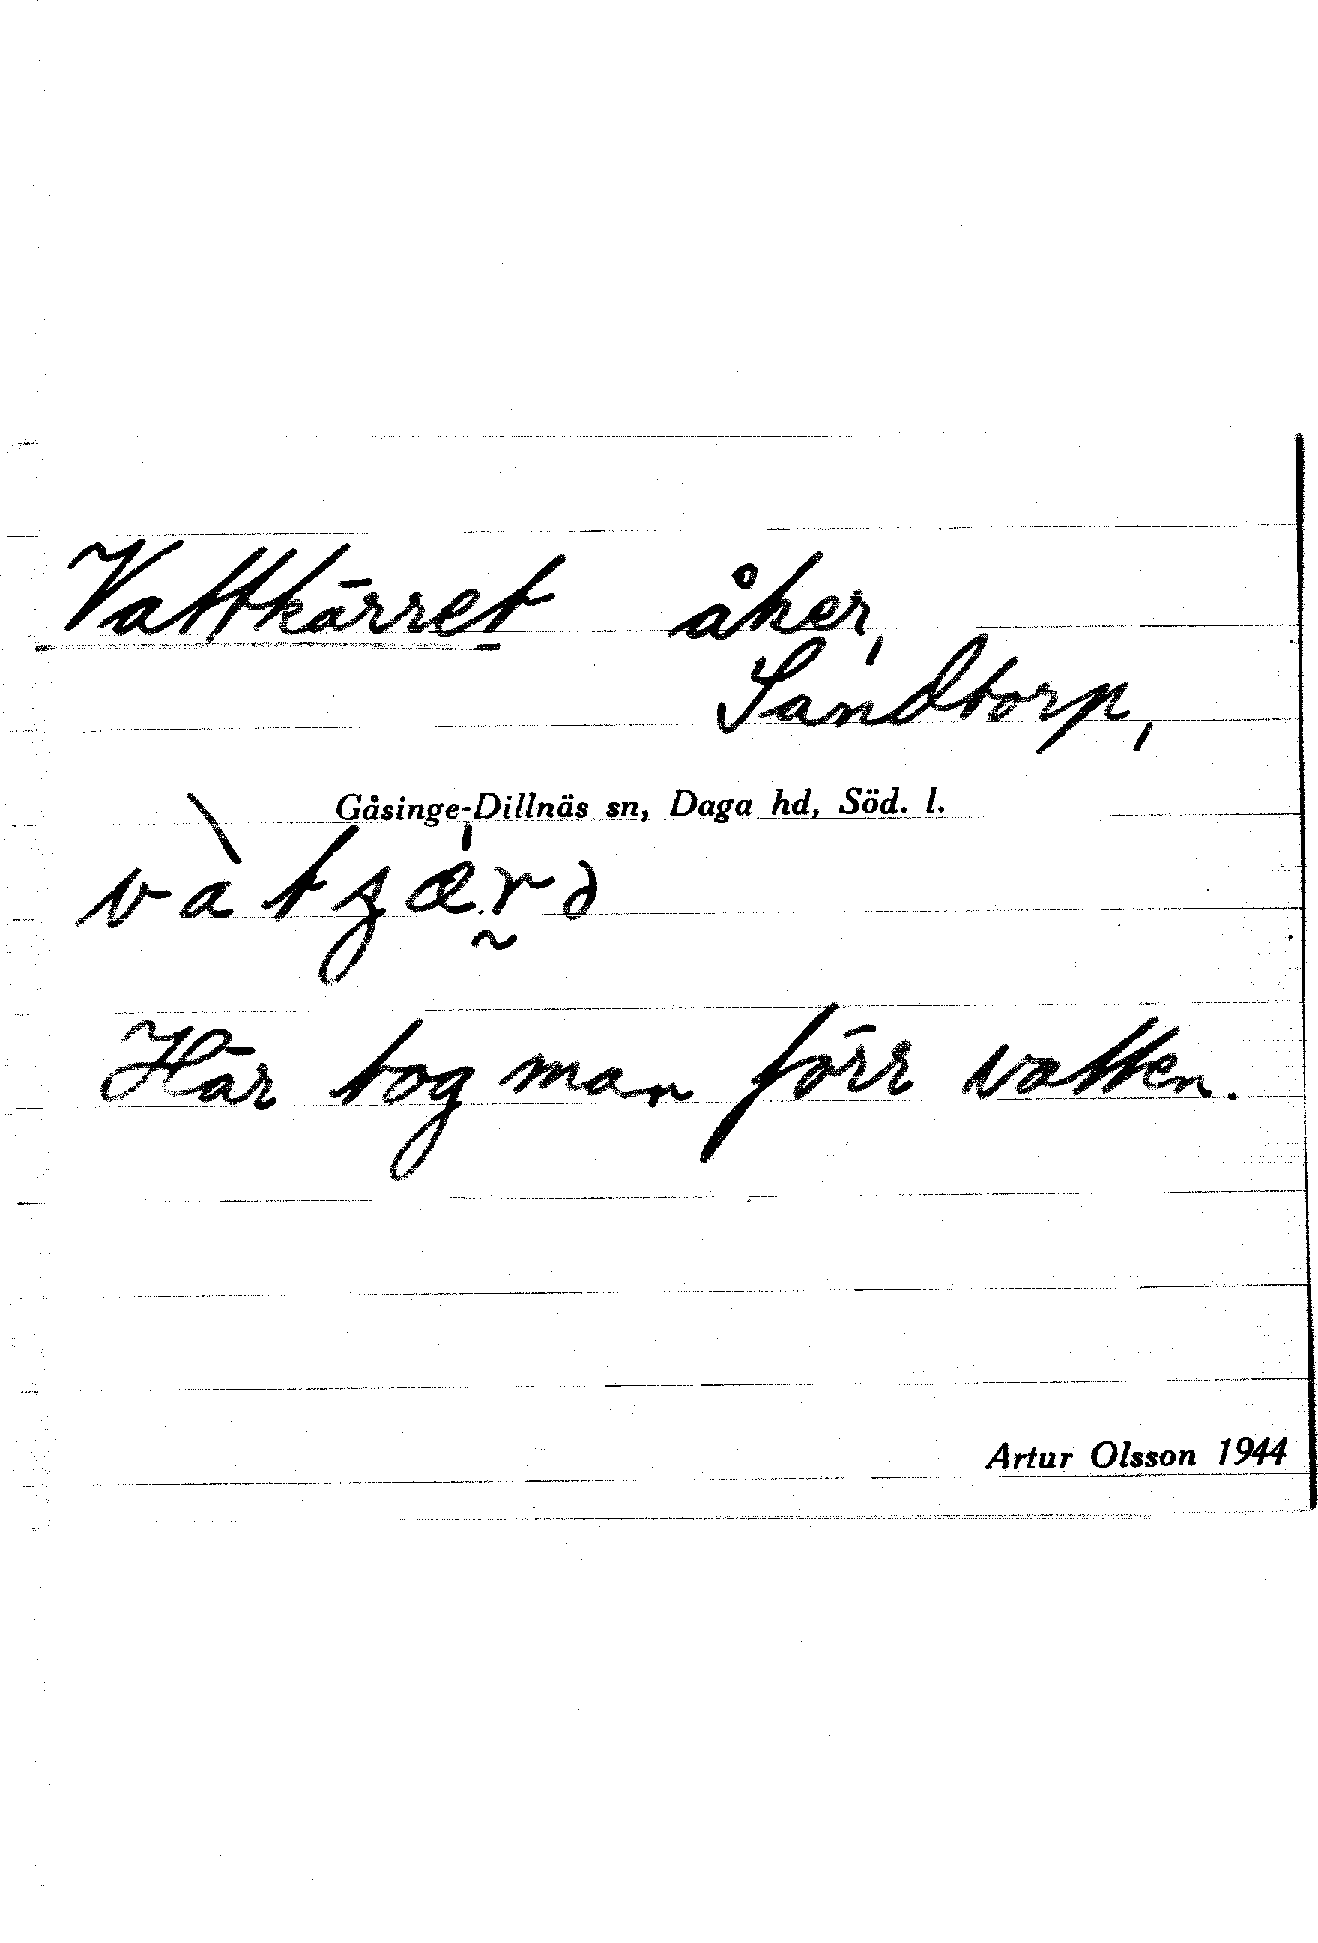 Vattkärret åker,
Sandtorp,
Gåsinge-Dillnäs sn, Daga hd, Söd. l.
vàtʒæ̀rə
Här tog man förr vatten.
Artur Olsson 1944